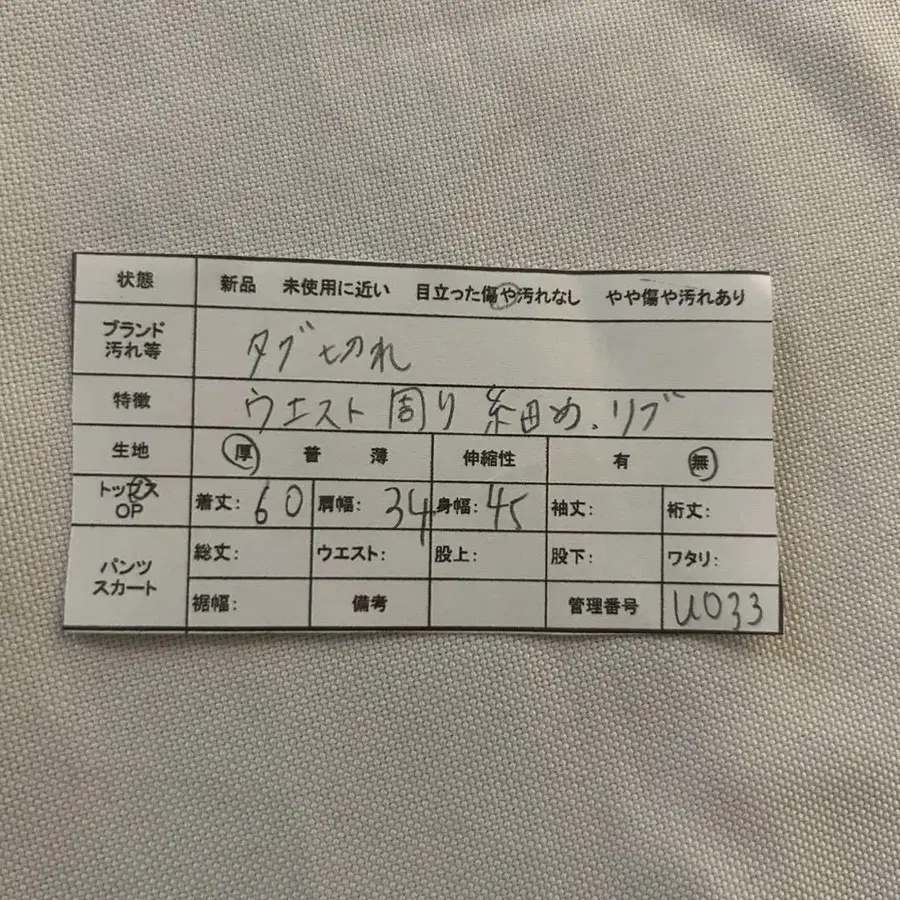 状態 新品 未使用に近い 目立った傷や汚れなし やや傷や汚れあり
ブランド
汚れ等 タグ切れ
特徴 ウエスト周り 細め、リブ
生地 厚 普 薄 伸縮性 有 無
トップス
OP 着丈: 60 肩幅: 34 身幅: 45 袖丈: 裄丈:
パンツ
スカート 総丈: ウエスト: 股上: 股下: ワタリ:
裾幅: 備考 管理番号 U033